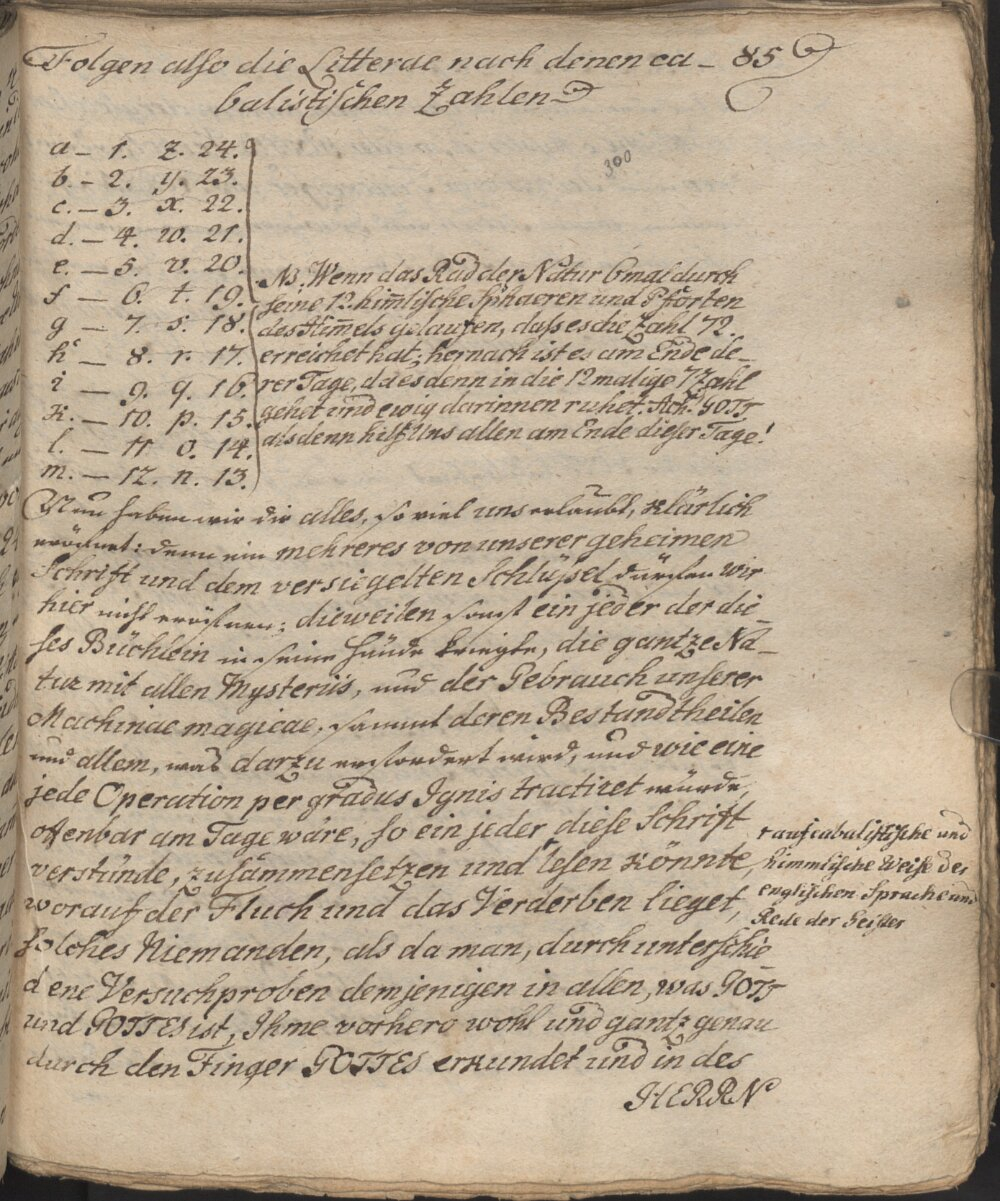 Folgen also die Litterae nach denen ca- 85
balistischen Zahlen
300
a - 1. z. 24.
b. - 2. y. 23.
c. - 3. x. 22.
d. - 4. w. 21.
e. - 5. v. 20.
f - 6. t. 19.
g - 7. s. 18.
h - 8. r. 17.
i - 9. q. 16.
k. - 10. p. 15.
l. - 11 o. 14.
m. - 12. n. 13.
NB. Wenn das Rad der Natur 6mal durch
seine 12. him̅lische Sphaeren und Pforten
des Him̅els gelaufen, dass es die Zahl 72.
erreichet hat; hernach ist es am Ende de-
rer Tage, da es denn in die 12malige 7 Zahl
gehet und ewig darinnen ruhet. Ach! GOTT
alsdenn hilf Uns allen am Ende dieser Tage!
Nun haben wir dir alles, so viel uns erlaubt, klärlich
eröffnet: denn ein mehreres von unserer geheimen
Schrift und dem versiegelten Schlüssel dürfen wir
hier nicht eröffnen; dieweilen sonst ein jeder der die-
ses Büchlein in seine Hände kriegte, die gantze Na-
tur mit allen Mysteriis, und der Gebrauch unserer
Machinae magicae, sammt deren Bestandtheilen
und allem, was darzu erfordert wird, und wie eine
jede Operation per gradus Ignis tractiret würde,
offenbar am Tage wäre, so ein jeder diese Schrift
verstünde, zusammensetzen und lesen könnte,
worauf der Fluch und das Verderben lieget,
solches Niemanden, als da man, durch unterschie
dene Versuchproben demjenigen in allen, was GOTT
und GOTTES ist, Ihme vorhero wohl und gantz genau
durch den Finger GOTTES erkundet und in des
HERRN
+ auf cabalistische und
himmlische Weise der
englischen Sprache und
Rede der Geister